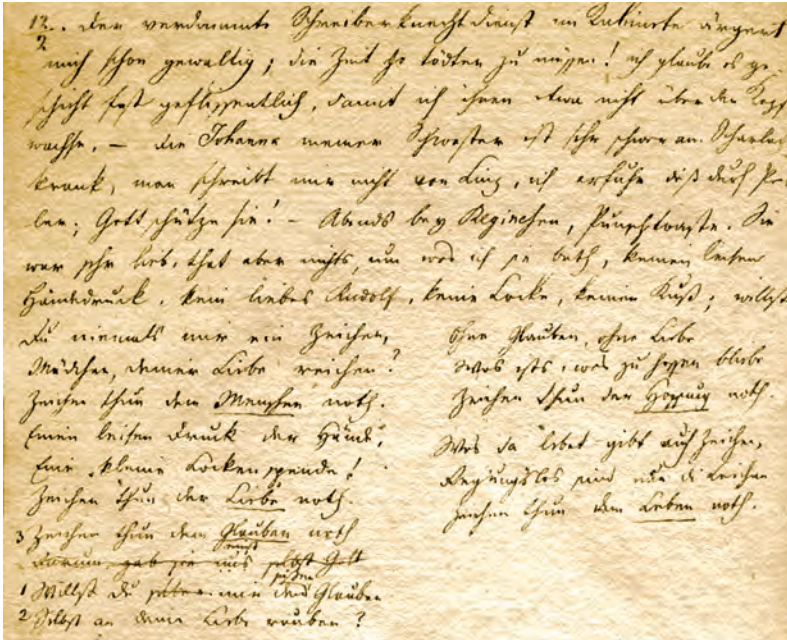 12. Der verdammte Schreiberknechtdienst im Kabinete ärgert
2
mich schon gewaltig; die Zeit so tödten zu müssen! ich glaube es ge-
schieht fast geflissentlich, damit ich ihnen etwa nicht über den Kopf
wachse. — Die Johanna meiner Schwester ist sehr schwer an Scharlach
krank, man schreibt mir nicht von Linz, ich erfuhr diß durch
Gott schütze sie! – Abends bey Reginchen, Punschtoaste. Sie
war sehr lieb, that aber nichts, um was ich sie bath, keinen leisen
Händedruck, kein liebes Rudolf, keine Locke, keinen Kuß; willst
Du niemals mir ein Zeichen,
Mädchen, deiner Liebe reichen?
Zeichen thun dem Menschen noth.
Einen leisen Druck der Hände,
Eine kleine Lockenspende!
Zeichen thun der Liebe noth.
3 Zeichen thun dem Glauben noth
Darum gab sie uns selbst Gott
1 Willst du mir den Glauben
2 Selbst an deine Liebe rauben?
Ohne Glauben, ohne Liebe
Was ists, was zu hoffen bliebe
Zeichen thun der Hoffnung noth.
Was da lebet gibt auch Zeichen,
Regungslos sind nur die Leichen
Zeichen thun dem Leben noth.